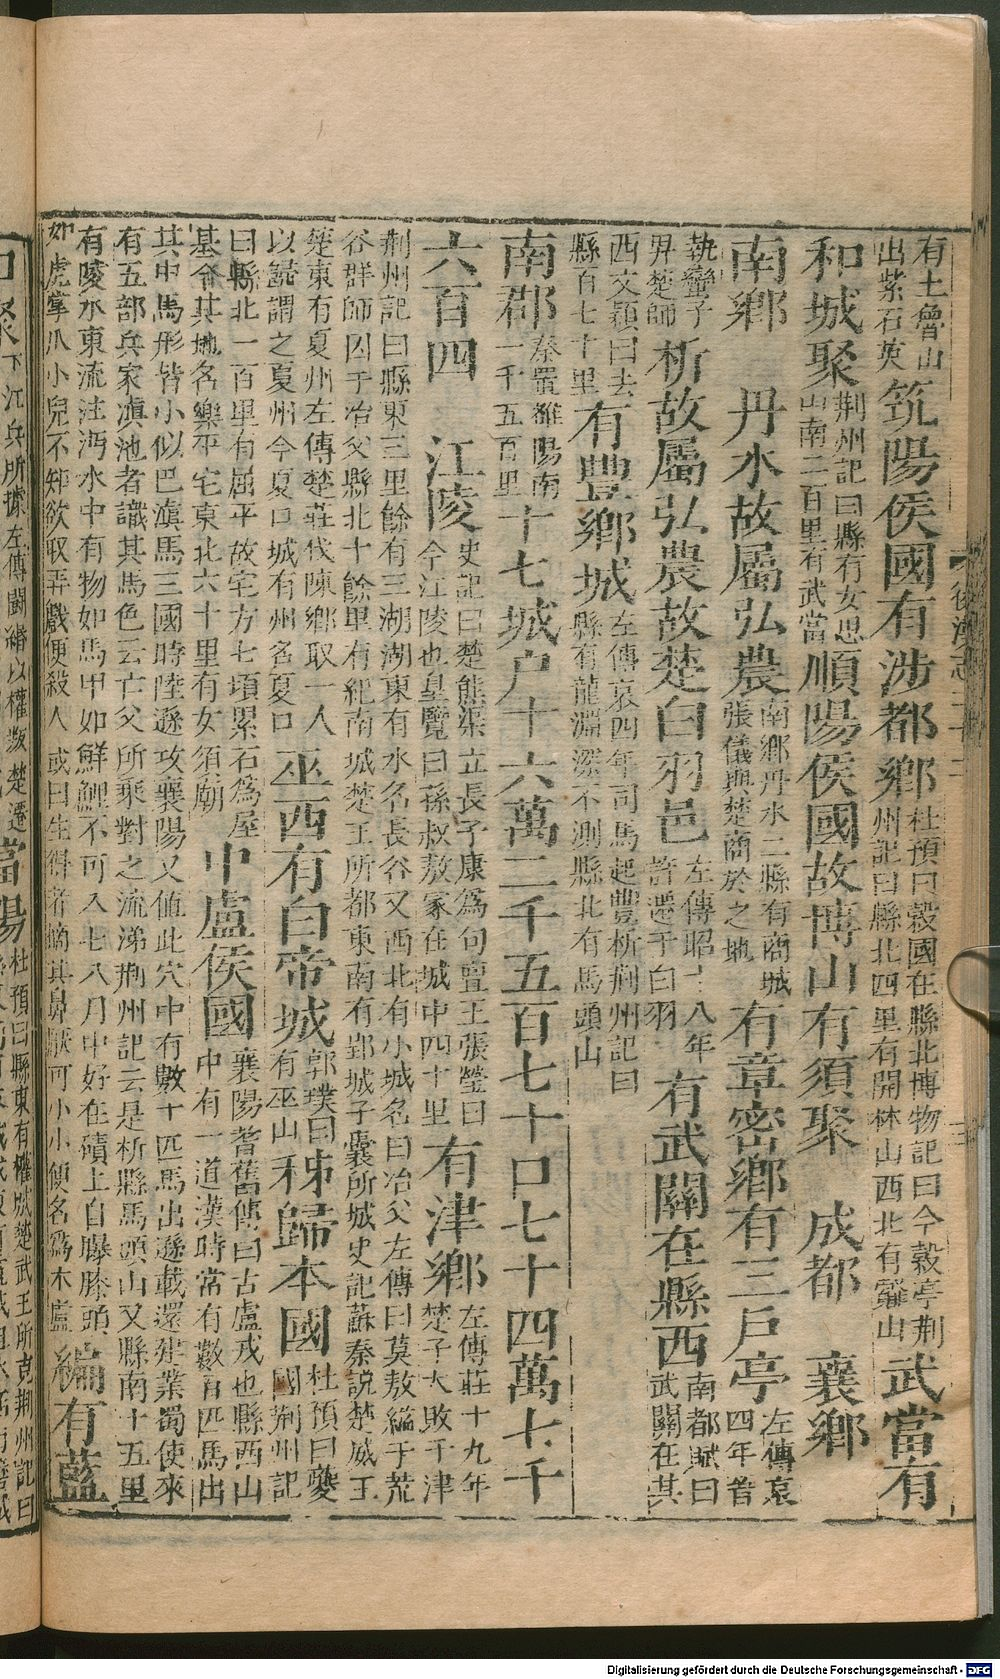 有土魯山
出紫石英
筑陽侯國有涉都鄉
杜預曰穀國在縣北博物記曰今穀亭荆
州記曰縣北四里有開林山西北有靃山
武當有
和城聚
荆州記曰縣有女思
山南二百里有武當
順陽侯國故博山有須聚　成都　襄鄉
南鄉　丹水故屬弘農
南鄉丹水二縣有商城
張儀與楚商於之地
有章密鄉有三戶亭
左傳哀
四年晉
執蠻子
畀楚師
析故屬弘農故楚白羽邑
左傳昭十八年
許遷于白羽
有武關在縣西
南都賦曰
武關在其
西文穎曰去
縣百七十里
有豐鄉城
左傳哀四年司馬起豐析荆州記曰
縣有龍淵深不測縣北有馬頭山
南郡
秦置雒陽南
一千五百里
十七城户十六萬二千五百七十口七十四萬七千
六百四　江陵
史記曰楚熊渠立長子康爲句亶王張瑩曰
今江陵也皇覽曰孫叔敖冢在城中四十里
有津鄉
左傳莊十九年
楚子大敗于津
荆州記曰縣東三里餘有三湖湖東有水名長谷又西北有小城名曰冶父左傳曰莫敖縊于荒
谷群師囚于冶父縣北十餘里有紀南城楚王所都東南有郢城子囊所城史記蘇秦說楚威王
楚東有夏州左傳楚莊伐陳鄉取一人
以歸謂之夏州今夏口城有州名夏口
巫西有白帝城
郭璞曰
有巫山
秭歸本國
杜預曰夔
國荆州記
曰縣北一百里有屈平故宅方七頃累石爲屋
基今其地名樂平宅東北六十里有女須廟
中盧侯國
襄陽耆舊傳曰古盧戎也縣西山
中有一道漢時常有數百匹馬出
其中馬形皆小似巴滇馬三國時陸遜攻襄陽又值此穴中有數十匹馬出遜載還建業蜀使來
有五部兵家滇池者識其馬色云亡父所乘對之流涕荆州記云是析縣馬頭山又縣南十五里
有陵水東流注沔水中有物如馬甲如鮮鯉不可入七八月中好在磧上自曝膝頭
如虎掌爪小兒不知欲取弄戲便殺人或曰生得者摘其鼻厭可小小使名爲木盧
編有藍
口聚
下江兵所據左傳鬬緡以權叛楚遷
當陽
杜預曰縣東有權城楚武王所克荆州記曰
後漢志二十二
Digitalisierung gefördert durch die Deutsche Forschungsgemeinschaft - DFG